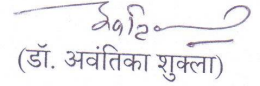 (डॉ. अवंतिका शुक्ला)